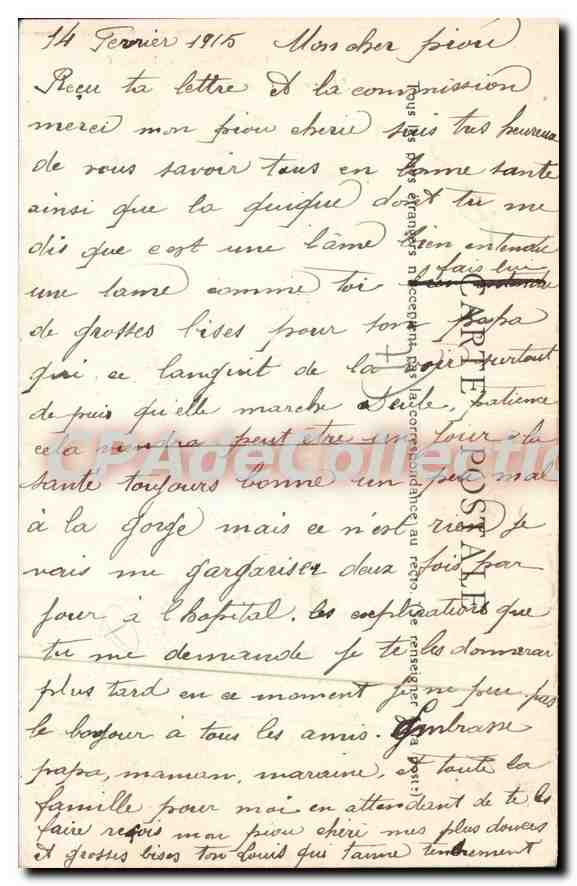 14 Fevrier 1915 Mon cher piou
Reçu ta lettre et la commission
merci mon piou cherie suis tres heureux
de vous savoir tous en bonne sante
ainsi que la guigue dont tu me
dis que c est une lâme bien entendu
une lame comme toi fais lui
de grosses bises pour son papa
qui ce languit de la voir surtout
depuis qu'elle marche seule, patience
cela viendra peut etre un jour. la
sante toujours bonne un peu mal
à la gorge mais ce n'est rien je
vais me gargariser deux fois par
jour à l'hopital. les explications que
tu me demande je te les donnerai
plus tard en ce moment je ne peu pas
le bonjour à tous les amis. Embrasse
papa, maman, maraine, et toute la
famille pour moi en attendant de te les
faire reçois mon piou chéri mes plus douces
et grosses bises ton Louis qui t'aime tendrement
CARTE POSTALE
Tous les pays étrangers n'acceptent pas la correspondance au recto. (Se renseigner à la poste)
CPADeCollection